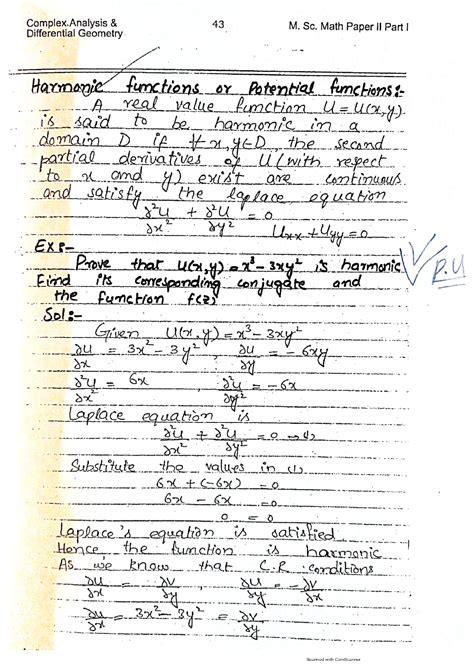 Complex.Analysis & 43 M. Sc. Math Paper II Part I
Differential Geometry
Harmonic functions or Potential functions:-
A real value function U = U(x,y)
is said to be harmonic in a
domain D if ∀ x,y∈D, the second
partial derivatives of U (with repect
to x and y) exist are continuous
and satisfy the laplace equation
∂²U/∂x² + ∂²U/∂y² = 0
Uxx + Uyy = 0
EX:-
Prove that U(x,y) = x³ - 3xy² is harmonic
P.U
Find its corresponding conjugate and
the function f(z)
Sol:-
Given U(x,y) = x³ - 3xy²
∂U/∂x = 3x² - 3y² , ∂U/∂y = - 6xy
∂²U/∂x² = 6x , ∂²U/∂y² = - 6x
Laplace equation is
∂²U/∂x² + ∂²U/∂y² = 0 → (1)
Substitute the values in (1)
6x + (-6x) = 0
6x - 6x = 0
0 = 0
Laplace's equation is satisfied
Hence the function is harmonic
As we know that C.R conditions
∂U/∂x = ∂V/∂y , ∂U/∂y = -∂V/∂x
∂U/∂x = 3x² - 3y² = ∂V/∂y
Scanned with CamScanner